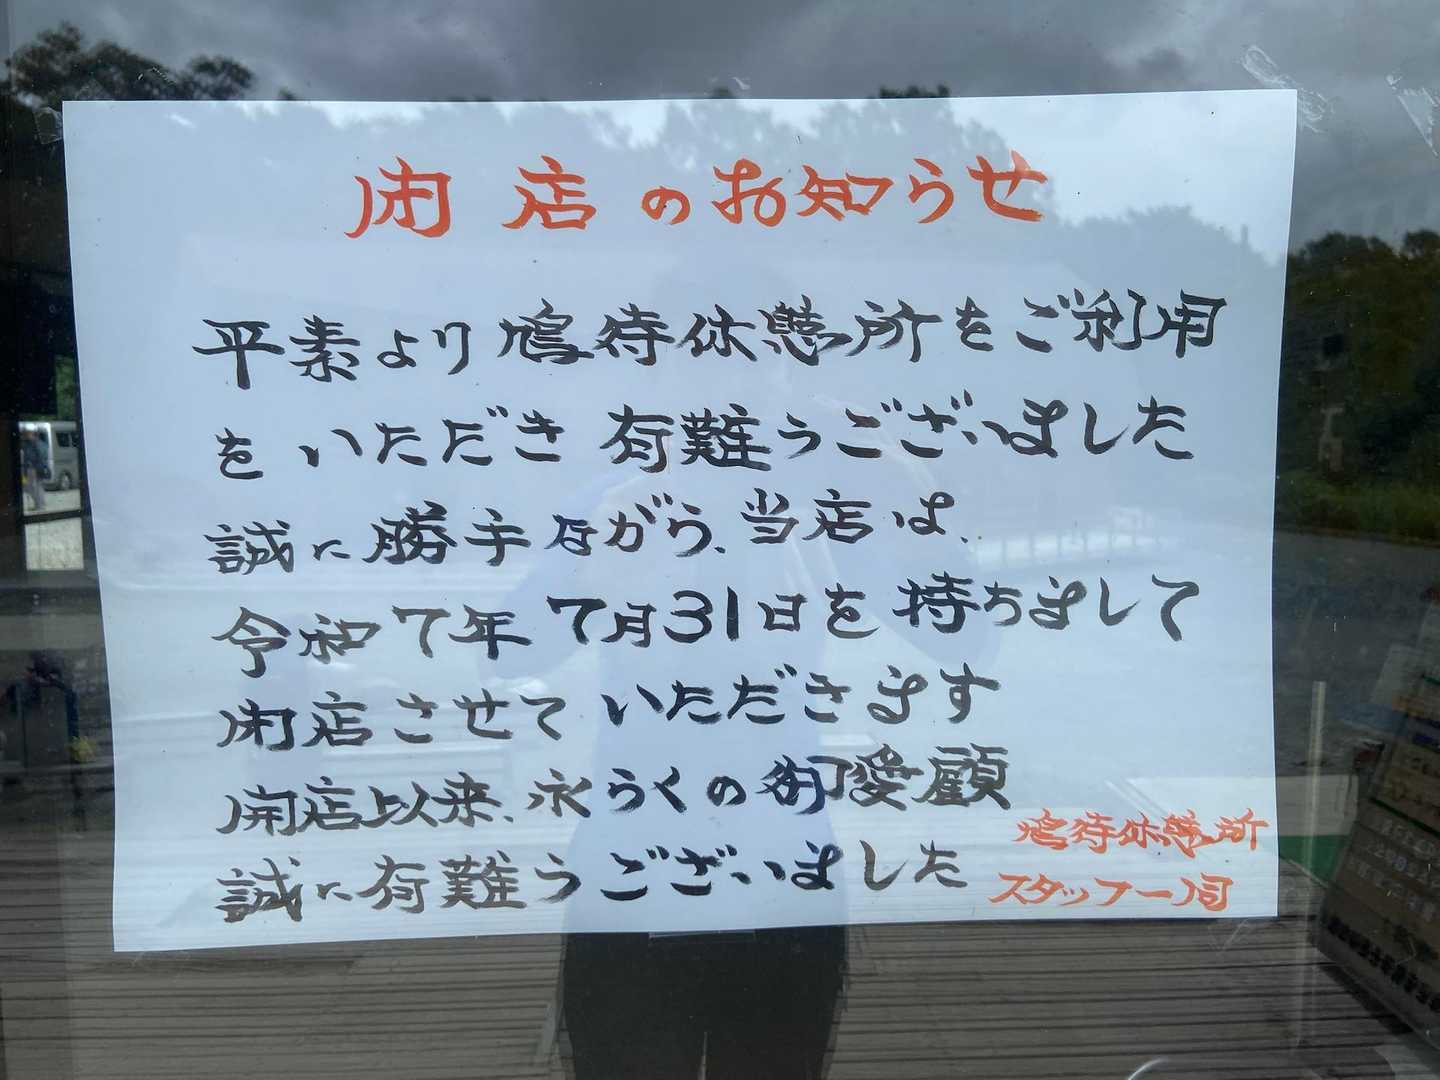 閉店のお知らせ
平素より鳩待休憩所をご利用
をいただき有難うございました
誠に勝手ながら、当店は、
令和7年7月31日を持ちまして
閉店させていただきます
開店以来、永らくの御愛顧
誠に有難うございました
鳩待休憩所
スタッフ一同